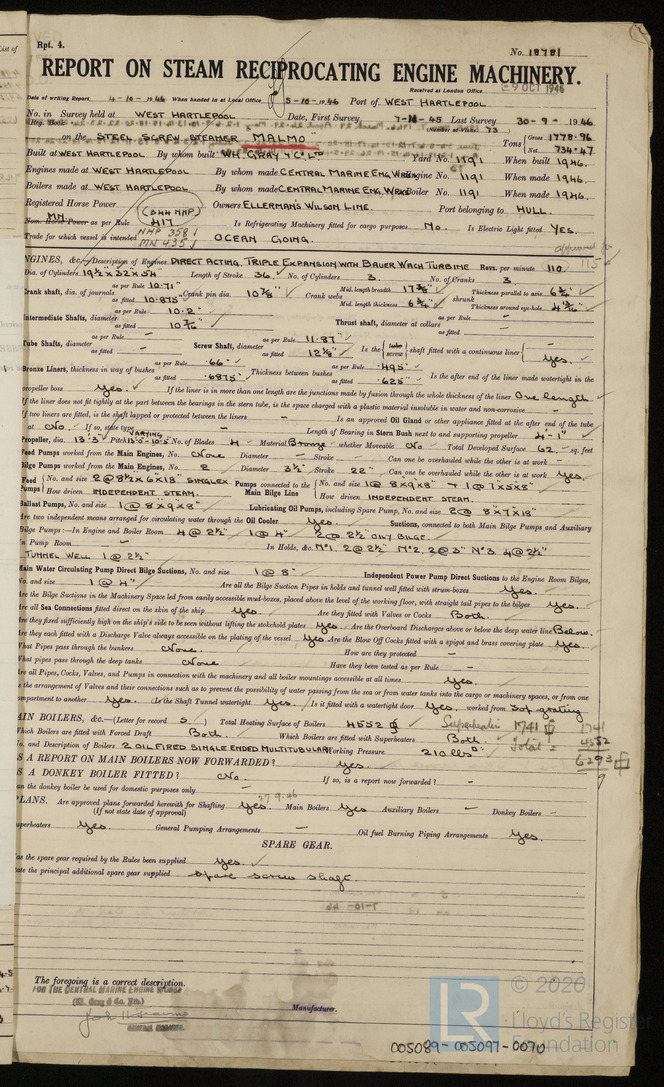 Rpt. 4.
No. 18781
REPORT ON STEAM RECIPROCATING ENGINE MACHINERY.
Received at London Office 9 OCT 1946
Date of writing Report 4-10-1946 When handed in at Local Office 5-10-1946 Port of WEST HARTLEPOOL
No. in Survey held at WEST HARTLEPOOL Date, First Survey 7-11-45 Last Survey 30-9-1946
Reg. Book. (Number of Visits 73)
on the STEEL SCREW STEAMER MALMO Tons Gross 1778.96
Net 734.47
Built at WEST HARTLEPOOL By whom built WM. GRAY & Co LTD Yard No. 1191 When built 1946.
Engines made at WEST HARTLEPOOL By whom made CENTRAL MARINE ENG. WRKS Engine No. 1191 When made 1946.
Boilers made at WEST HARTLEPOOL By whom made CENTRAL MARINE ENG. WRKS Boiler No. 1191 When made 1946.
Registered Horse Power Owners ELLERMAN'S WILSON LINE. Port belonging to HULL.
(344 NHP)
MN.
Nom. Horse Power as per Rule 417 Is Refrigerating Machinery fitted for cargo purposes No. Is Electric Light fitted YES.
NHP 358
MN 435
Trade for which vessel is intended OCEAN GOING.
ENGINES, &c. Description of Engines DIRECT ACTING, TRIPLE EXPANSION WITH BAUER WACH TURBINE Revs. per minute 110
115
Dia. of Cylinders 19½" x 32 x 54" Length of Stroke 36 No. of Cylinders 3 No. of Cranks 3
Crank shaft, dia. of journals as per Rule 10.71" Crank pin dia. 10⅞" Crank webs Mid. length breadth 17⅞" Thickness parallel to axis 6¾"
as fitted 10.875" Mid. length thickness 6¾" shrunk Thickness around eye-hole 4 13/16"
Intermediate Shafts, diameter as per Rule 10.2" Thrust shaft, diameter at collars as per Rule
as fitted 10 7/16" as fitted -
Tube Shafts, diameter as per Rule - Screw Shaft, diameter as per Rule 11.87" Is the tube screw shaft fitted with a continuous liner - Yes.
as fitted - as fitted 12⅛"
Bronze Liners, thickness in way of bushes as per Rule .66" Thickness between bushes as per Rule .495" Is the after end of the liner made watertight in the
as fitted .6875" as fitted .625"
propeller boss Yes. If the liner is in more than one length are the junctions made by fusion through the whole thickness of the liner One length.
If the liner does not fit tightly at the part between the bearings in the stern tube, is the space charged with a plastic material insoluble in water and non-corrosive -
If two liners are fitted, is the shaft lapped or protected between the liners - Is an approved Oil Gland or other appliance fitted at the after end of the tube
at No. If so, state type - Length of Bearing in Stern Bush next to and supporting propeller 4'-1"
Propeller, dia. 13'3" Pitch VARYING No. of Blades 4 Material Bronze whether Moveable No Total Developed Surface 62 sq. feet
Feed Pumps worked from the Main Engines, No. None Diameter - Stroke - Can one be overhauled while the other is at work -
Bilge Pumps worked from the Main Engines, No. 2 Diameter 3½" Stroke 22" Can one be overhauled while the other is at work Yes.
Feed Pumps No. and size 2 @ 8½ x 6 x 18" SINGLEX Pumps connected to the Main Bilge Line No. and size 1 @ 8" x 9" x 8" + 1 @ 7" x 5" x 8"
How driven INDEPENDENT STEAM. How driven INDEPENDENT STEAM.
Ballast Pumps, No. and size 1 @ 8" x 9" x 8" Lubricating Oil Pumps, including Spare Pump, No. and size 2 @ 8" x 7" x 18"
Are two independent means arranged for circulating water through the Oil Cooler Yes. Suctions, connected to both Main Bilge Pumps and Auxiliary
Bilge Pumps:-In Engine and Boiler Room 4 @ 2½" 1 @ 4" 2 @ 2½" OILY BILGE
In Pump Room - In Holds, &c. No.1. 2 @ 2½" No.2. 2 @ 3" No.3. 4 @ 2½"
TUNNEL WELL 1 @ 2½"
Main Water Circulating Pump Direct Bilge Suctions, No. and size 1 @ 8" Independent Power Pump Direct Suctions to the Engine Room Bilges,
No. and size 1 @ 4" Are all the Bilge Suction Pipes in holds and tunnel well fitted with strum-boxes Yes.
Are the Bilge Suctions in the Machinery Space led from easily accessible mud-boxes, placed above the level of the working floor, with straight tail pipes to the bilges Yes.
Are all Sea Connections fitted direct on the skin of the ship Yes. Are they fitted with Valves or Cocks Both.
Are they fixed sufficiently high on the ship's side to be seen without lifting the stokehold plates Yes. Are the Overboard Discharges above or below the deep water line Below.
Are they each fitted with a Discharge Valve always accessible on the plating of the vessel Yes Are the Blow Off Cocks fitted with a spigot and brass covering plate Yes.
What Pipes pass through the bunkers None. How are they protected -
What pipes pass through the deep tanks None Have they been tested as per Rule -
Are all Pipes, Cocks, Valves, and Pumps in connection with the machinery and all boiler mountings accessible at all times Yes.
Is the arrangement of Valves and their connections such as to prevent the possibility of water passing from the sea or from water tanks into the cargo or machinery spaces, or from one
compartment to another Yes. Is the Shaft Tunnel watertight Yes. Is it fitted with a watertight door Yes. worked from Top grating
MAIN BOILERS, &c.-(Letter for record S.) Total Heating Surface of Boilers 4552 Superheater 1741 1741
Total = 4552
6293
Which Boilers are fitted with Forced Draft Both. Which Boilers are fitted with Superheaters Both
No. and Description of Boilers 2 OIL FIRED SINGLE ENDED MULTITUBULAR Working Pressure 210 lbs
IS A REPORT ON MAIN BOILERS NOW FORWARDED? Yes.
IS A DONKEY BOILER FITTED? No. If so, is a report now forwarded? -
Can the donkey boiler be used for domestic purposes only -
27.9.46
PLANS. Are approved plans forwarded herewith for Shafting Yes. Main Boilers Yes Auxiliary Boilers - Donkey Boilers -
(If not state date of approval)
Superheaters Yes. General Pumping Arrangements - Oil fuel Burning Piping Arrangements Yes.
SPARE GEAR.
Has the spare gear required by the Rules been supplied Yes.
State the principal additional spare gear supplied Spare screw shaft.
The foregoing is a correct description.
FOR THE CENTRAL MARINE ENGINE WORKS
(Wm. Gray & Co. Ltd.)
Manufacturer.
GENERAL MANAGER.
LR © 2020
Lloyd's Register
Foundation
005089-005097-0070